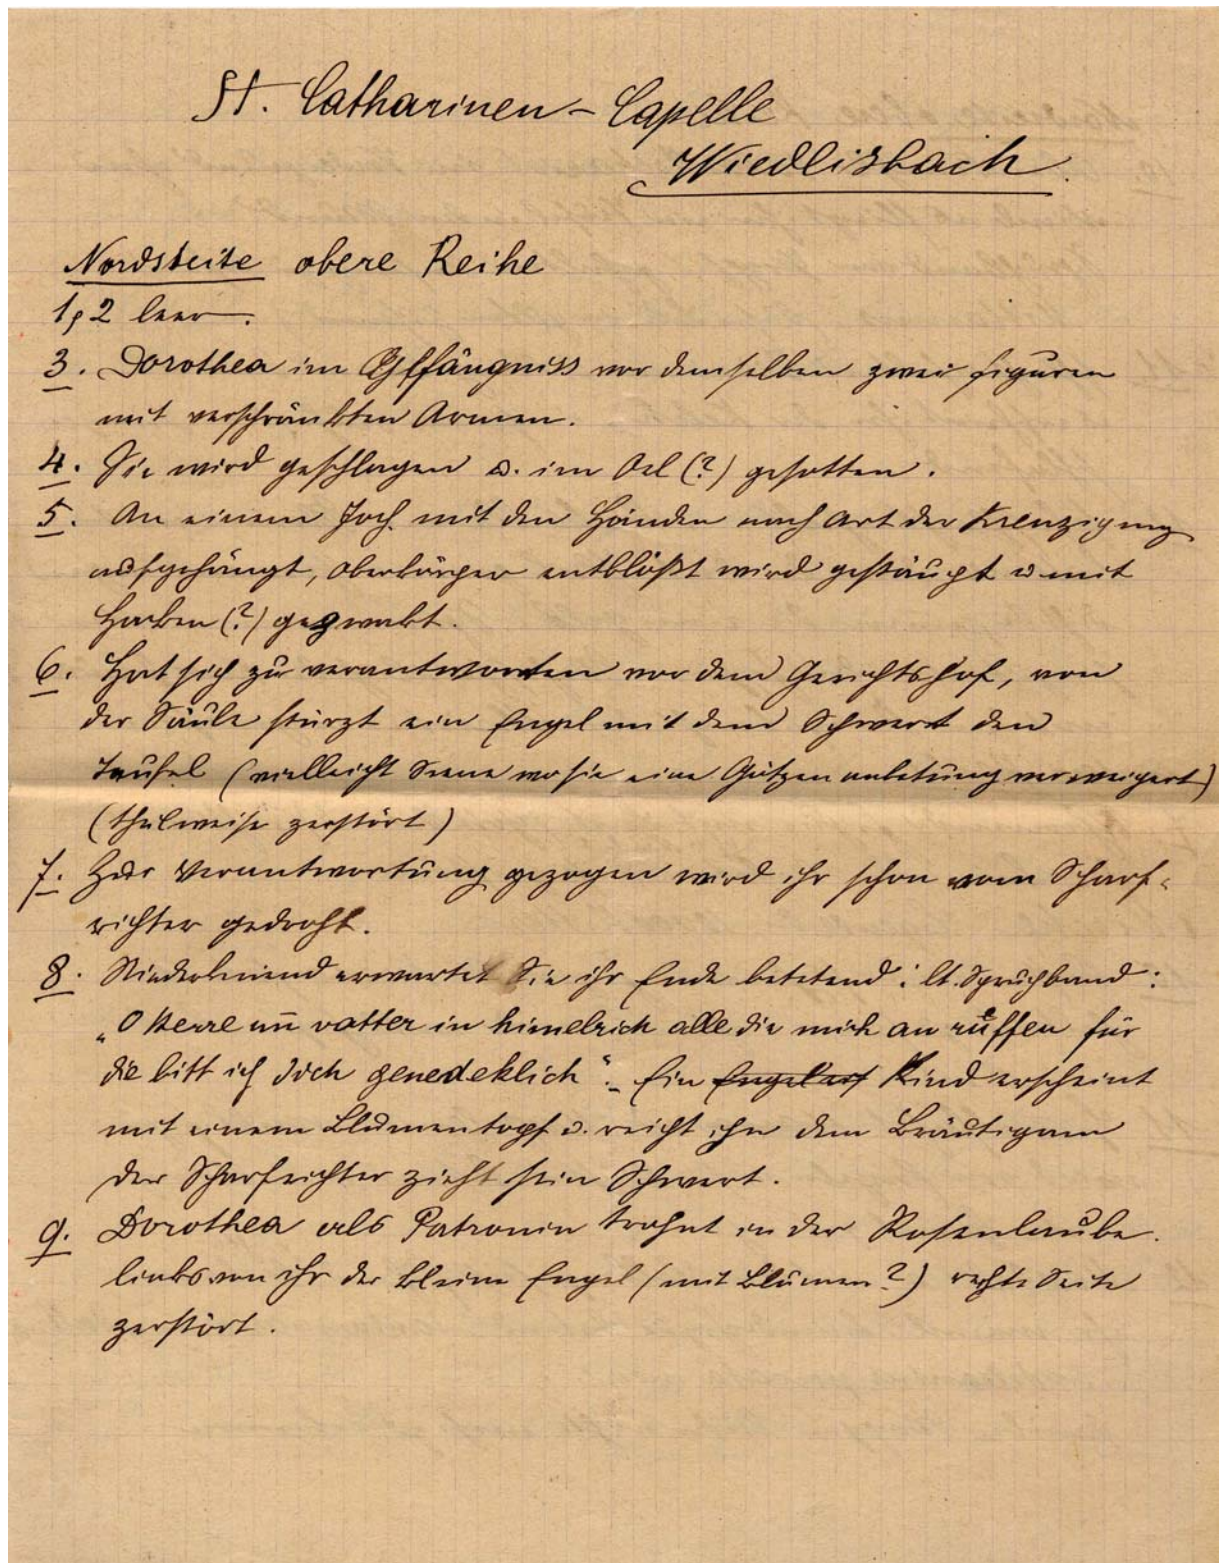 St. Catharinen-Capelle
Wiedlisbach.
Nordseite obere Reihe
1, 2 leer.
3. Dorothea im Gefängniss vor demselben zwei Figuren
mit verschränkten Armen.
4. Sie wird geschlagen u. im Oel (?) gesotten.
5. An einem Joch mit den Händen nach Art der Kreuzigung
aufgehängt, Oberkörper entblößt wird gestäupt u mit
Hacken (?) gezwakt.
6. Hat sich zu verantworten vor dem Gerichtshof, von
der Säule stürzt ein Engel mit dem Schwert den
Teufel (vielleicht Scene wo sie eine Götzenanbetung verweigert)
(theilweise zerstört)
7. Zur Verantwortung gezogen wird ihr schon vom Scharf-
richter gedroht.
8. Niederknieend erwartet Sie ihr Ende betetend: lt. Spruchband:
„O Herre un vatter in himelrich alle die mich an ruffen für
die bitt ich dich genedeklich". Ein Engel auf Kind erscheint
mit einem Blumentopf u. reicht ihn dem Bräutigam
der Scharfrichter zieht sein Schwert.
9. Dorothea als Patronin trohnt in der Rosenlaube.
links von ihr der kleine Engel (mit Blumen?) rechte Seite
zerstört.